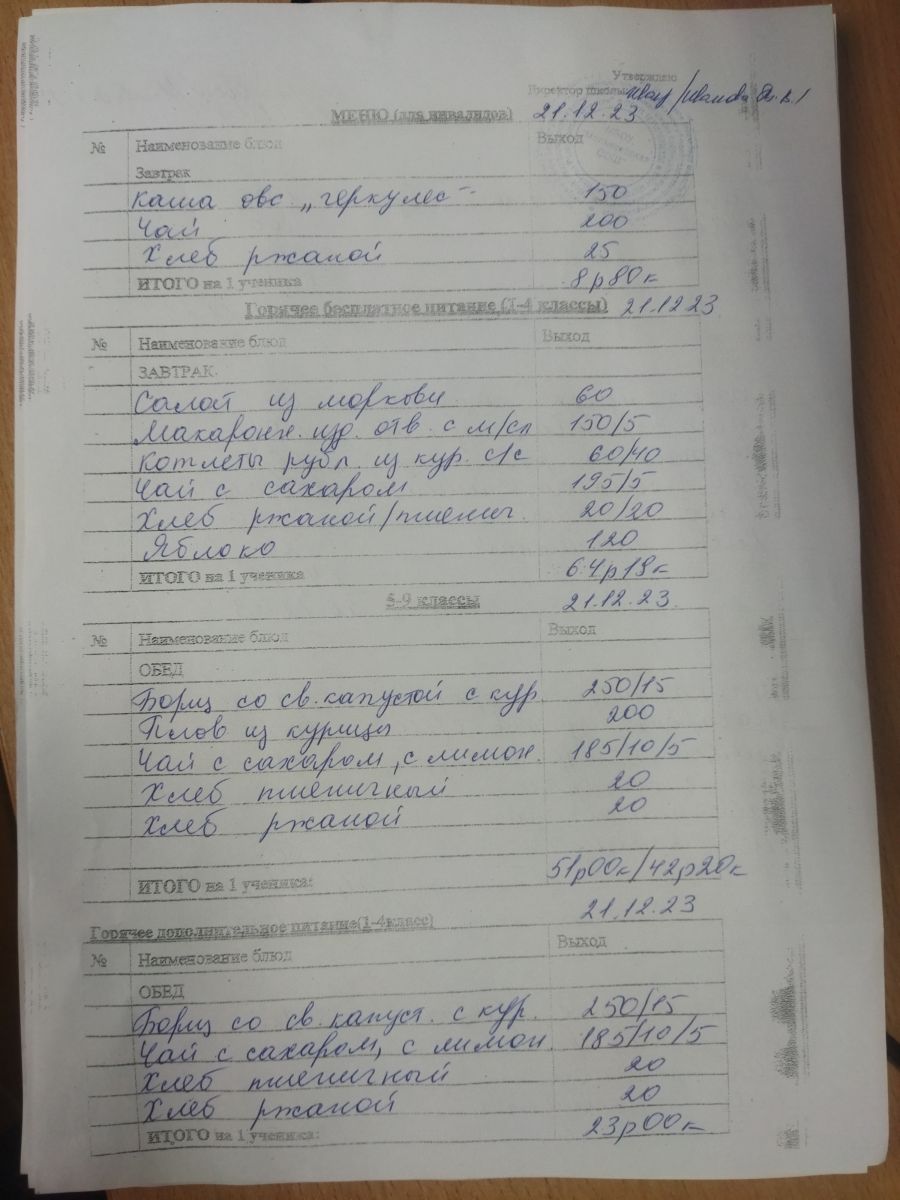 Утверждаю
Директор школы Иванова
МЕНЮ (для инвалидов) 21.12.23
№ Наименование блюд Выход
Завтрак
каша овс. „геркулес" 150
Чай 200
Хлеб ржаной 25
ИТОГО на 1 ученика 8р80к
Горячее бесплатное питание (1-4 классы) 21.12 23
№ Наименование блюд Выход
ЗАВТРАК.
Салат из моркови 60
Макаронн. изд. отв. с м/сл 150/5
Котлеты рубл. из кур. с/с 60/40
Чай с сахаром 195/5
Хлеб ржаной/пшенич. 20/20
Яблоко 120
ИТОГО на 1 ученика 64р19к
5-9 классы 21.12.23.
№ Наименование блюд Выход
ОБЕД
Борщ со св.капустой с кур. 250/15
Плов из курицы 200
Чай с сахаром, с лимон. 185/10/5
Хлеб пшеничный 20
Хлеб ржаной 20
ИТОГО на 1 ученика: 51р00к/42р20к
21.12.23
Горячее дополнительное питание(1-4класс)
№ Наименование блюд Выход
ОБЕД
Борщ со св.капуст. с кур. 250/15
Чай с сахаром, с лимон. 185/10/5
Хлеб пшеничный 20
Хлеб ржаной 20
ИТОГО на 1 ученика: 23р00к